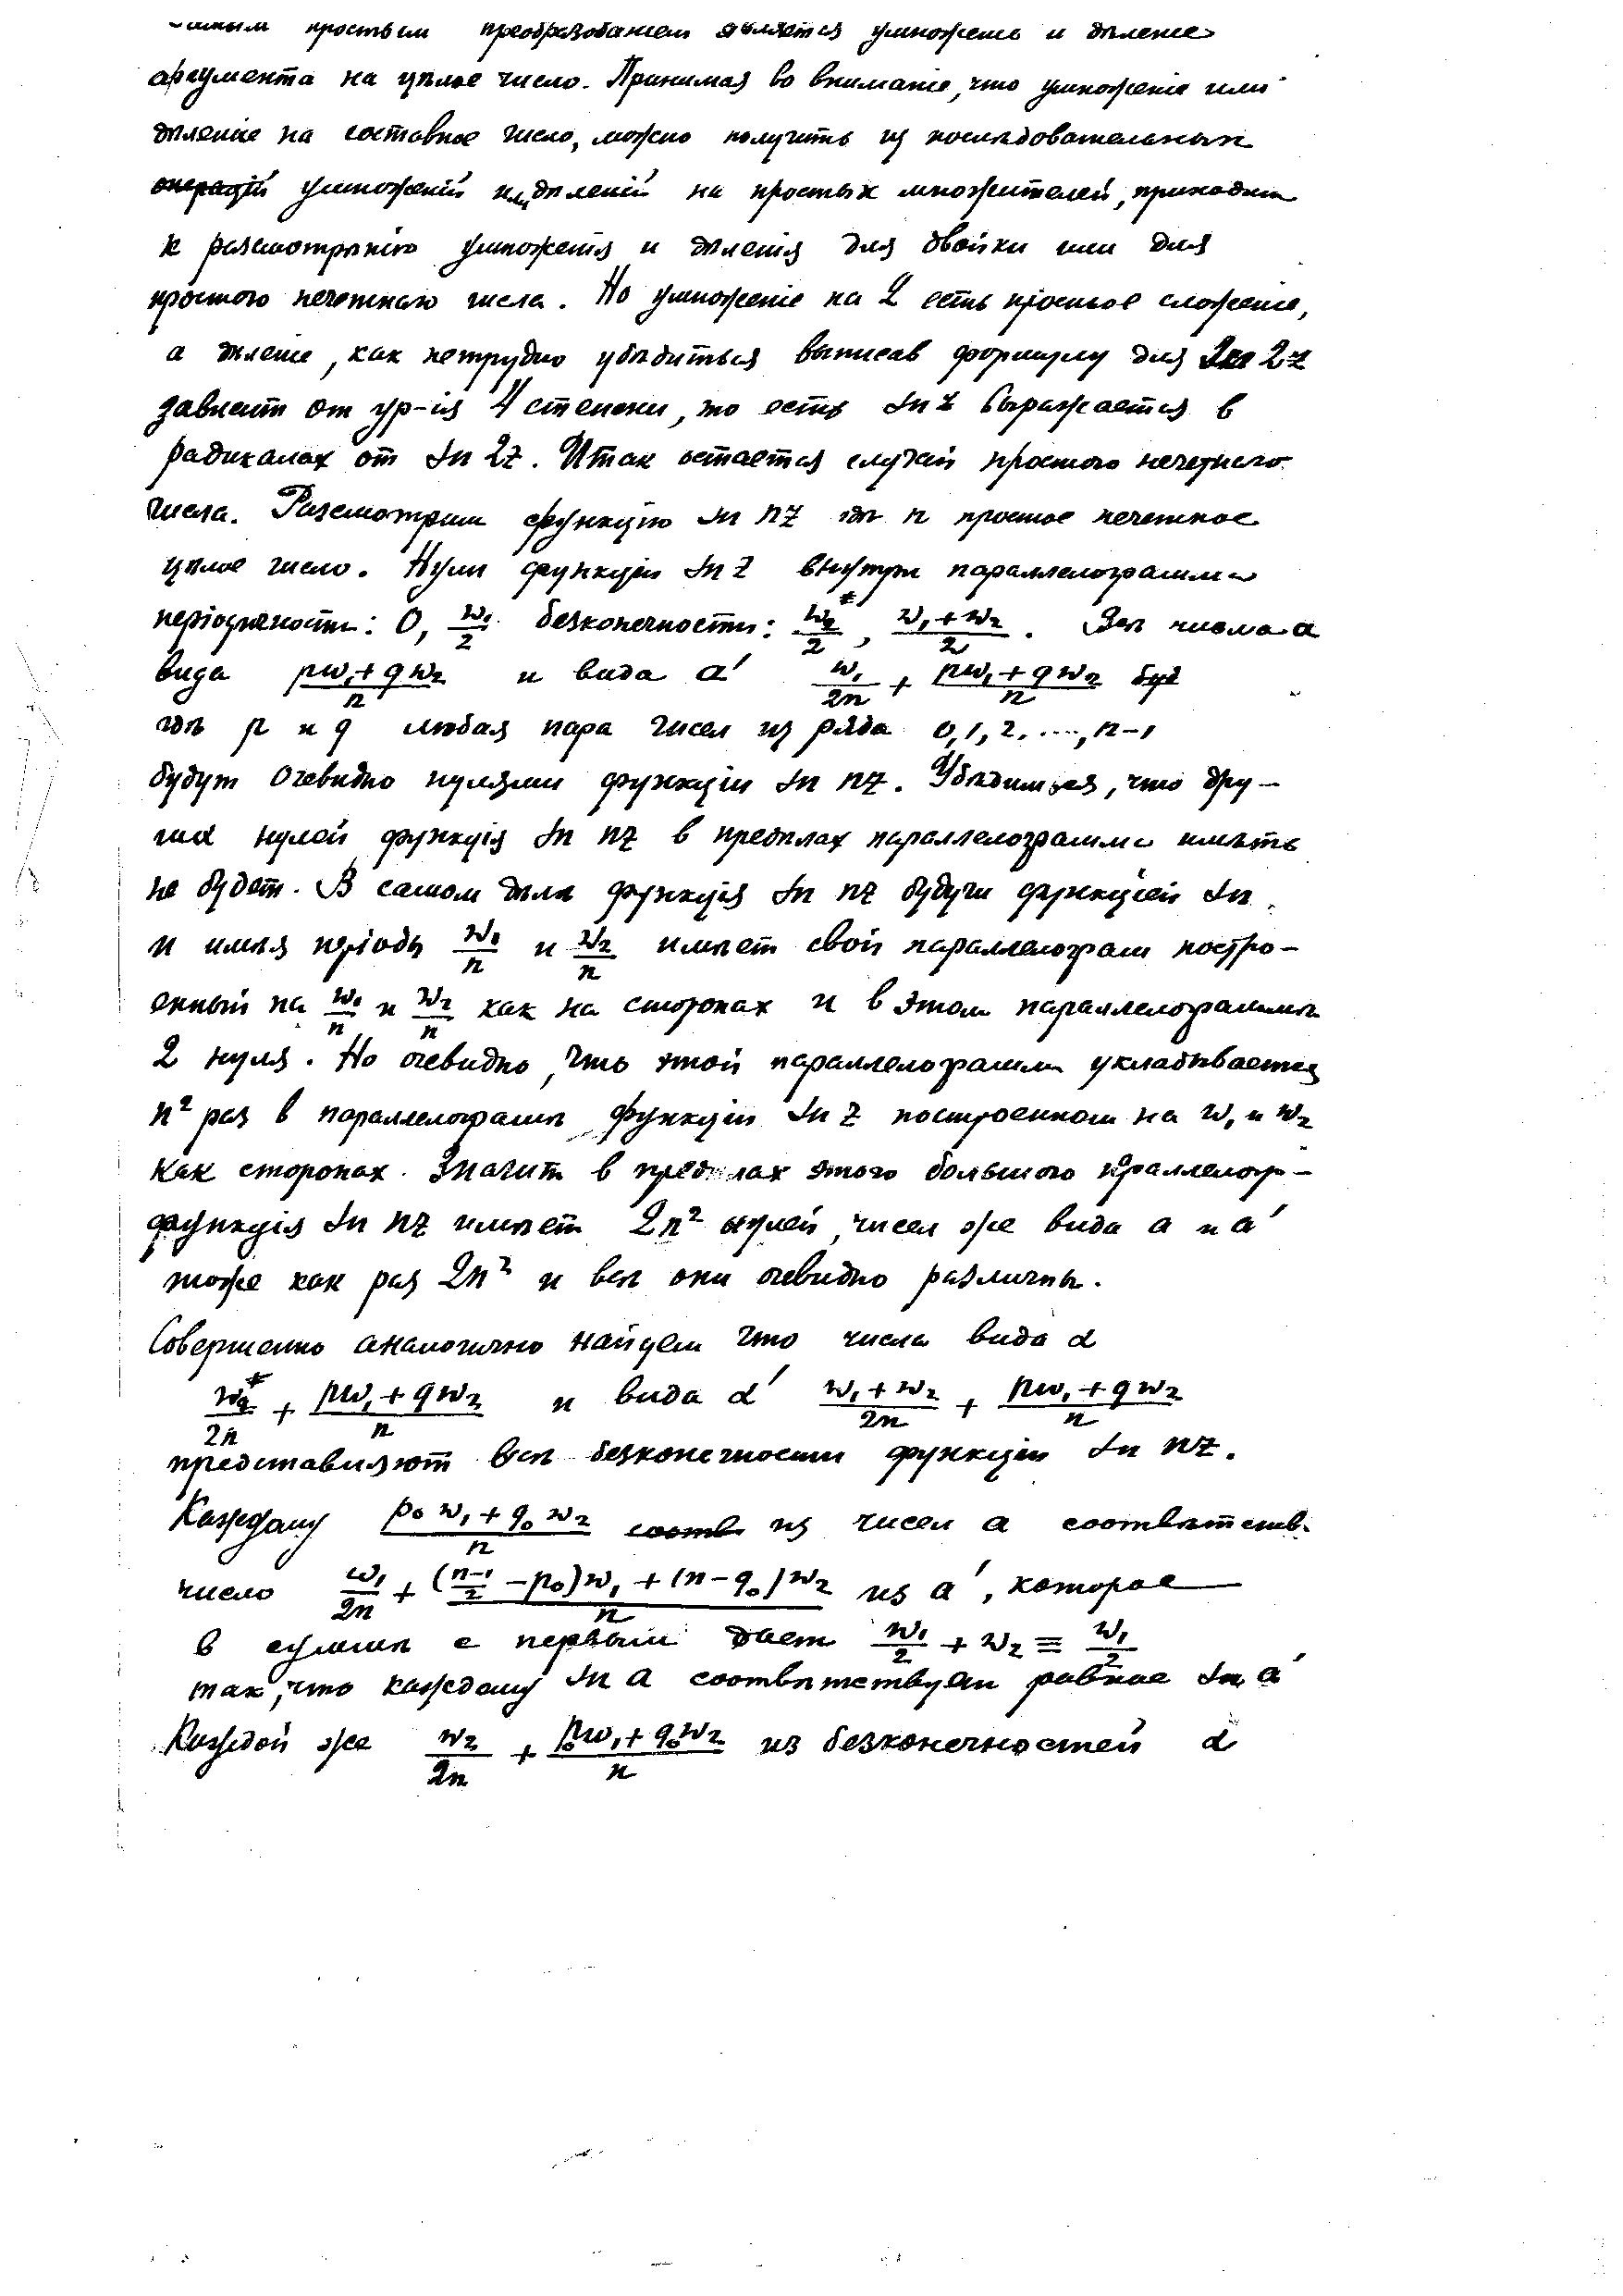 Самым простым преобразованіем является умноженіе и дѣленіе
аргумента на цѣлое число. Принимая во вниманіе, что умноженіе или
дѣленіе на составное число, можно получить из послѣдовательных
операцій умноженій или дѣленій на простых множителей, приходим
к разсмотрѣнію умноженія и дѣленія для двойки или для
простого нечетнаго числа. Но умноженіе на 2 есть простое сложеніе,
а дѣленіе, как нетрудно убѣдиться выписав формулу для Sn 2z
зависит от ур-ія 4 степени, то есть Sn z выражается в
радикалах от Sn 2z. Итак остается случай простого нечетнаго
числа. Разсмотрим функцію Sn nz гдѣ n простое нечетное
цѣлое число. Нули функціи Sn z внутри параллелограмма
періодичности: 0, w₁/2 безконечности: w₂/2, (w₁+w₂)/2. Всѣ числа a
вида (pw₁+qw₂)/n и вида a' w₁/2n + (pw₁+qw₂)/n буд
гдѣ p и q любая пара чисел из ряда 0, 1, 2, ...., n-1
будут очевидно нулями функціи Sn nz. Убѣдимся, что дру-
гих нулей функція Sn nz в предѣлах параллелограмма имѣть
не будет. В самом дѣлѣ функція Sn nz будучи функціей Sn
и имѣя періоды w₁/n и w₂/n имѣет свой параллелограм постро-
енный на w₁/n и w₂/n как на сторонах и в этом параллелограммѣ
2 нуля. Но очевидно, что этой параллелограмм укладывается
n² раз в параллелограмѣ функціи Sn z построенном на w₁ и w₂
как сторонах. Значит в предѣлах этого большого параллелогр-
функція Sn nz имѣет 2n² нулей, чисел же вида a и a'
тоже как раз 2n² и всѣ они очевидно различны.
Совершенно аналогично найдем что числа вида α
w₂/2n + (pw₁+qw₂)/n и вида α' (w₁+w₂)/2n + (pw₁+qw₂)/n
представляют всѣ безконечности функціи Sn nz.
Каждому (p₀w₁+q₀w₂)/n соотв из чисел a соотвѣтств.
число w₁/2n + ((n-1)/2 - p₀)w₁ + (n-q₀)w₂)/n из a', которое
в суммѣ с первым дает w₁/2 + w₂ ≡ w₁/2
так, что каждому Sn a соотвѣтствует равное Sn a'
Каждой же w₂/2n + (p₀w₁+q₀w₂)/n из безконечностей α